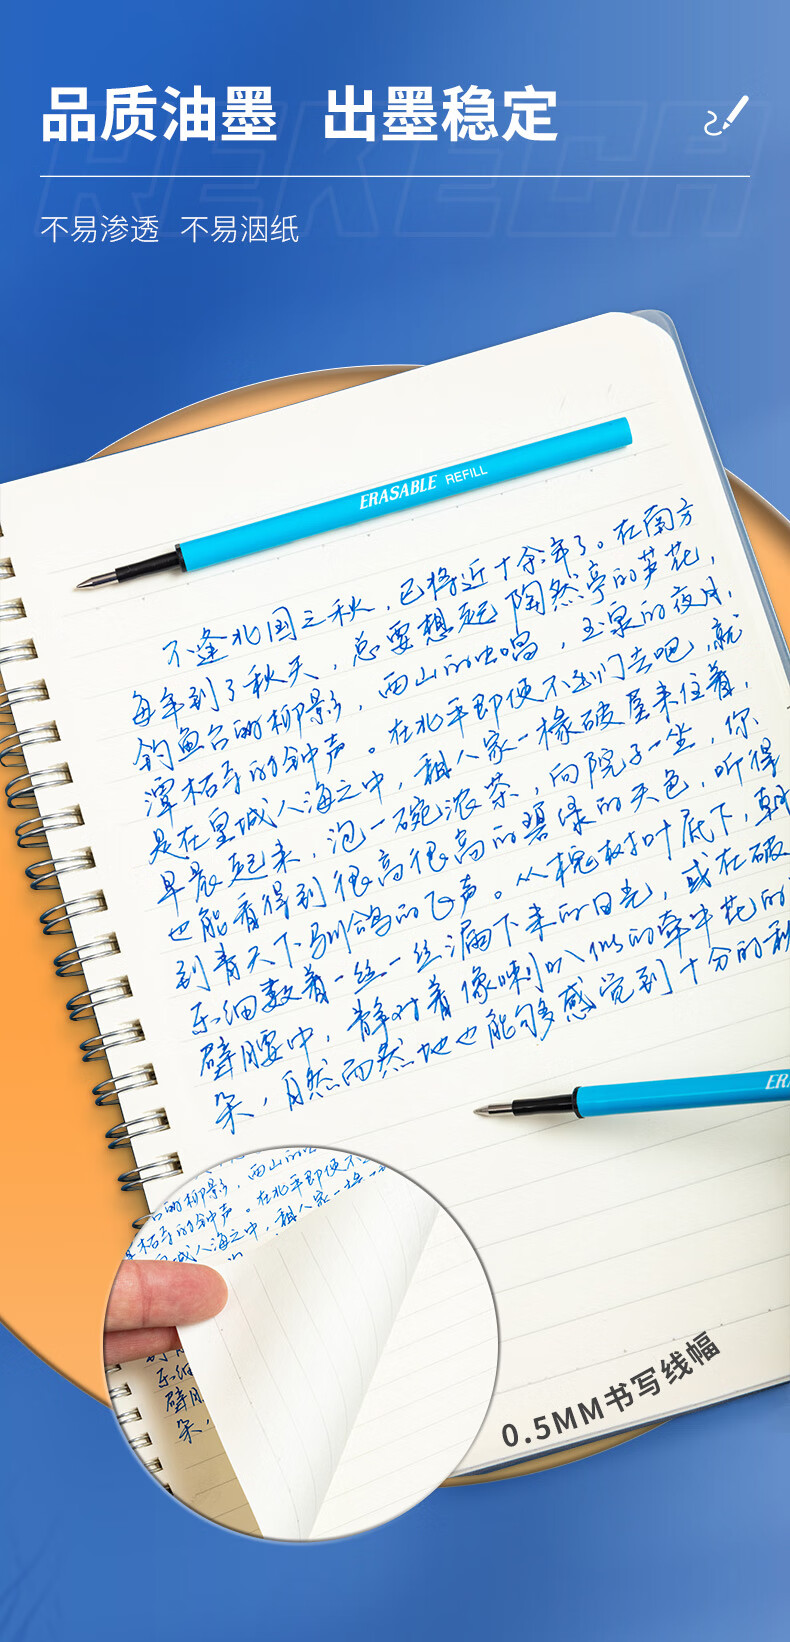 品质油墨 出墨稳定
不易渗透 不易洇纸
ERASABLE REFILL
不逢北国之秋，已将近十余年了。在南方
每年到了秋天，总要想起陶然亭的芦花，
钓鱼台的柳影，西山的虫唱，玉泉的夜月，
潭柘寺的钟声。在北平即使不出门去吧，就
是在皇城人海之中，租人家一椽破屋来住着，
早晨起来，泡一碗浓茶，向院子一坐，你
也能看得到很高很高的碧绿的天色，听得
到青天下驯鸽的飞声。从槐树叶底下，朝
东细数着一丝一丝漏下来的日光，或在破
壁腰中，静对着像喇叭似的牵牛花的
朵，自然而然地也能够感觉到十分的秋
0.5MM书写线幅